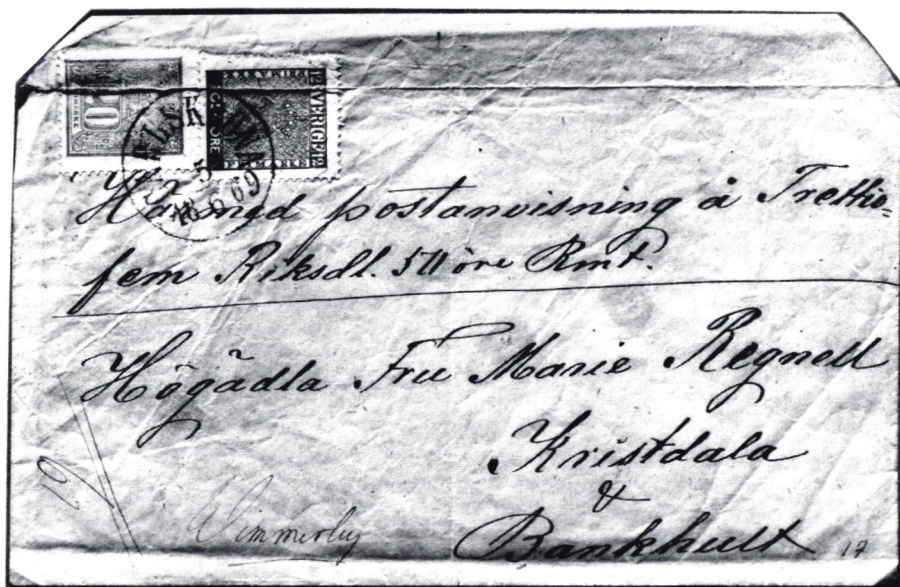 20
SVERIGE
12 12
ÖRE
18 6 69
Härmed postanvisning å Trettio=
fem Riksdl. 50 öre Rmt.
Högädla Fru Marie Regnell
Kristdala
&
Bankhult
Wimmerby
17